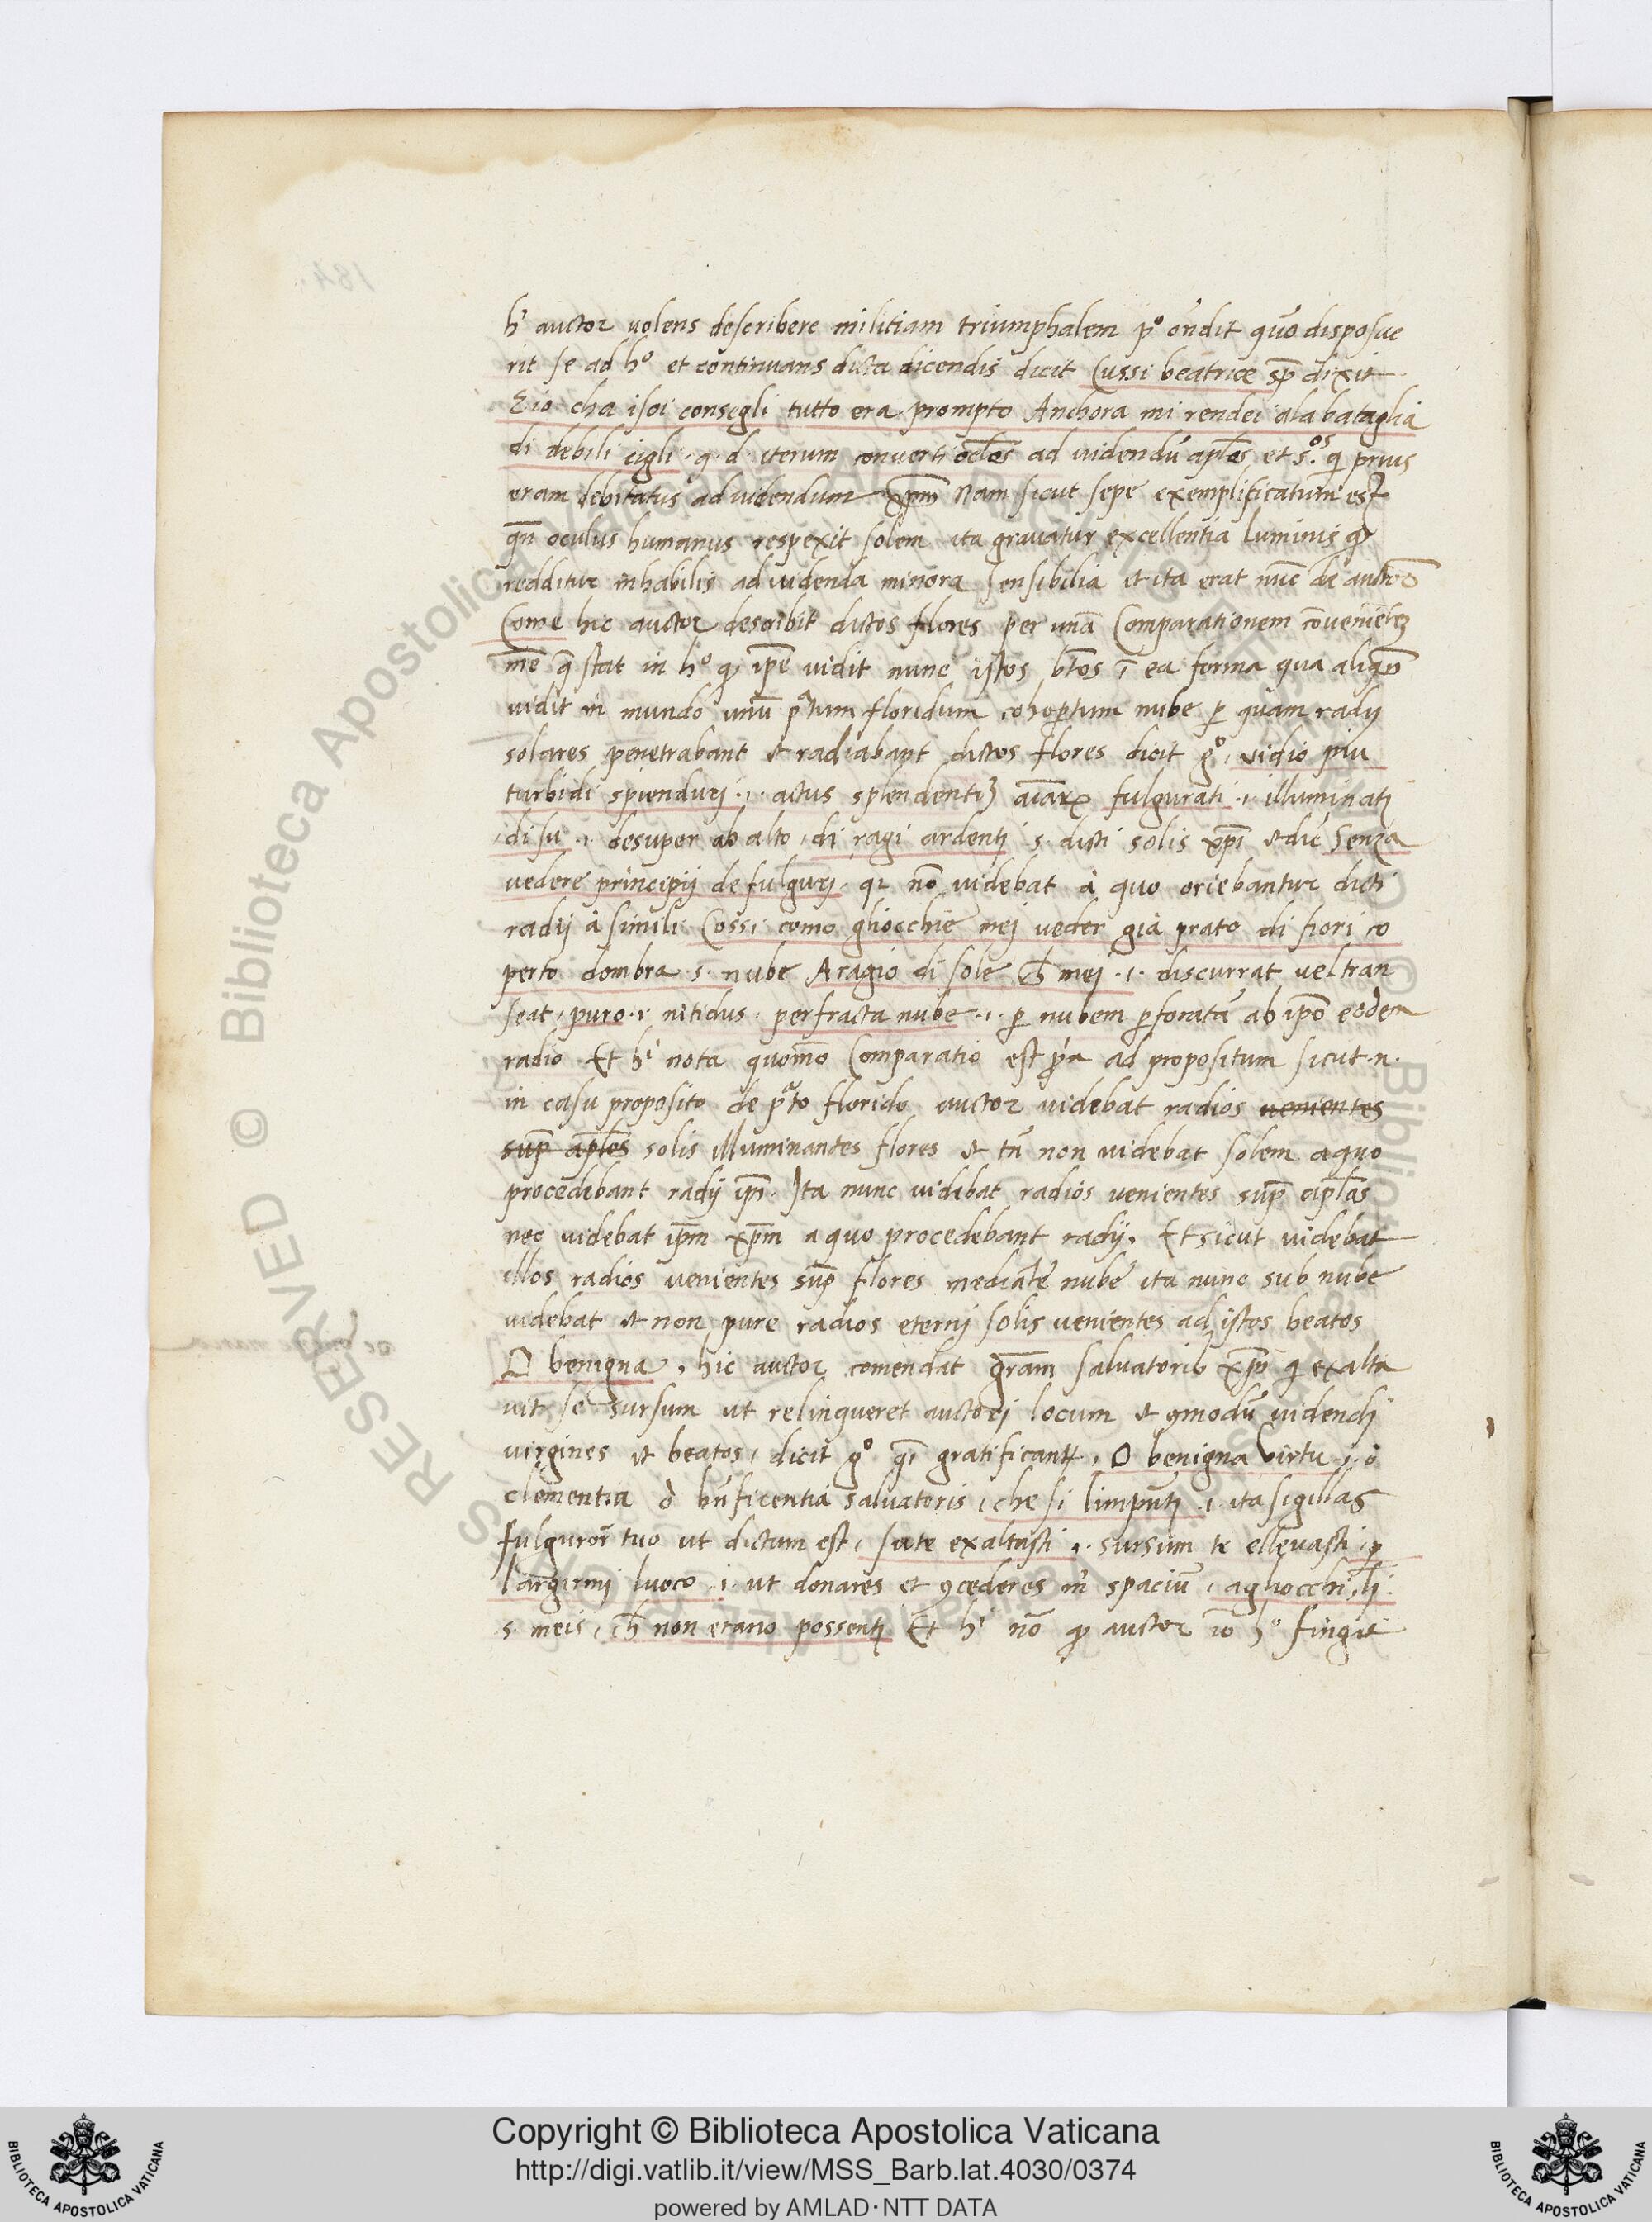 h' auctor volens describere militiam triumphalem p° on̄dit quō disposue
rit se ad h° et continuans dicta dicendis dicit Cussi beatrice sp̄ dixit
Eio cha isoi consegli tutto era prompto Anchora mi rendei ala bataglia
di debili cigli · q · d · iterum converti oclos ad videndū apl̄os et s.ᵒˢ q prius
eram debitatus ad videndum xp̄m Nam sicut sepe exemplificatum est
qn̄ oculus humanus respexit solem ita gravatur excellentia luminis q̄
redditur inhabilis ad videnda minora sensibilia et ita erat nūc de auctō
Come hic auctor describit dictos flores per unā Comparationem cōvenietē
mē q̄ stat in h° q̄ ip̄e vidit nunc istos b̄tos ī ea forma qua aliqn̄
vidit in mundo unū pᵃtum floridum cohoptum nube p̄ quam radij
solares penetrabant et radiabant dictos flores dicit g° · vidio piu
turbidi spienduri · i · actus splendentiȝ aīarꝝ fulgurati · i · illuminatj
di su · i · desuper ab alto · di ragi ardentj s · dicti solis xp̄i et dic̄ Senza
vedere principij de fulgurj · qꝛ nō videbat à quo oriebantur dicti
radij à simili Cossi como gliocchie mej veder già prato di fiori co
perto dombra · s · nube Aragio di sole ch̄ mej · i · discurrat vel tran
seat · puro · i · nitidus · perfracta nube · i · p̄ nubem p̄foratā ab ip̄o eodem
radio Et h' nota quomō Comparatio est p̄a ad propositum sicut · n ·
in casu proposito de pᵃto florido auctor videbat radios venientes
sup̄ apl̄os solis illuminantes flores et tn̄ non videbat solem aquo
procedebant radij ip̄i · Ita nunc videbat radios venientes sup̄ apl̄as
nec videbat ip̄m xp̄m a quo procedebant radij. Et sicut videbat
illos radios venientes sup̄ flores mediāte nube ita nunc sub nube
videbat et non pure radios eternj solis venientes ad istos beatos
O benigna · hic auctor comendat gr̄am salvatoris xp̄i q exalta
vit se sursum ut relinqueret auctorj locum et ꝯmodū videndj
virgines et beatos · dicit g° q̄i gratificant̄ · O benigna virtu · i · ò
clementia ò bn̄ficentia salvatoris · che si limpūtj · i · ita sigillas
fulguror̄ tuo ut dictum est · sute exaltasti · i · sursum te ellevasti p̄
largirmj luoco · i · ut donares et ꝯcederes m̄ spaciū · agliocchi · lj ·
s · meis · ch̄ non erano possentj Et h' nō q̄ auctor iō h° fingit
Copyright © Biblioteca Apostolica Vaticana
http://digi.vatlib.it/view/MSS_Barb.lat.4030/0374
powered by AMLAD·NTT DATA
BIBLIOTECA APOSTOLICA VATICANA
BIBLIOTECA APOSTOLICA VATICANA